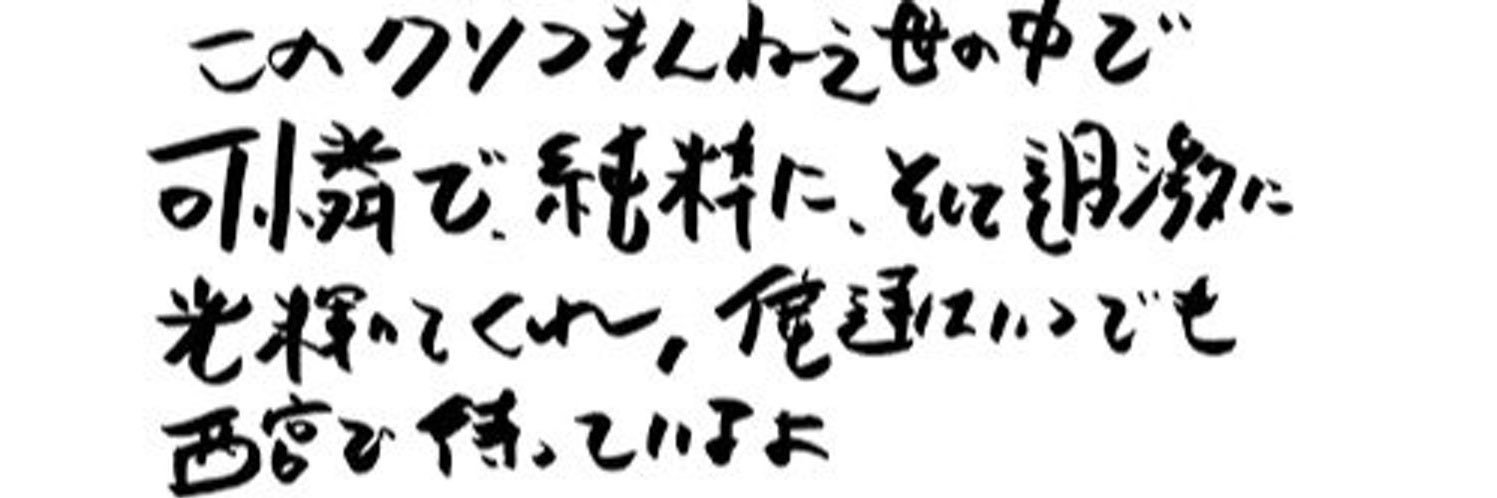 このクソつまんねえ世の中で
可憐で、純粋に、そして過激に
光輝いてくれ、俺達はいつでも
西宮で待っているよ